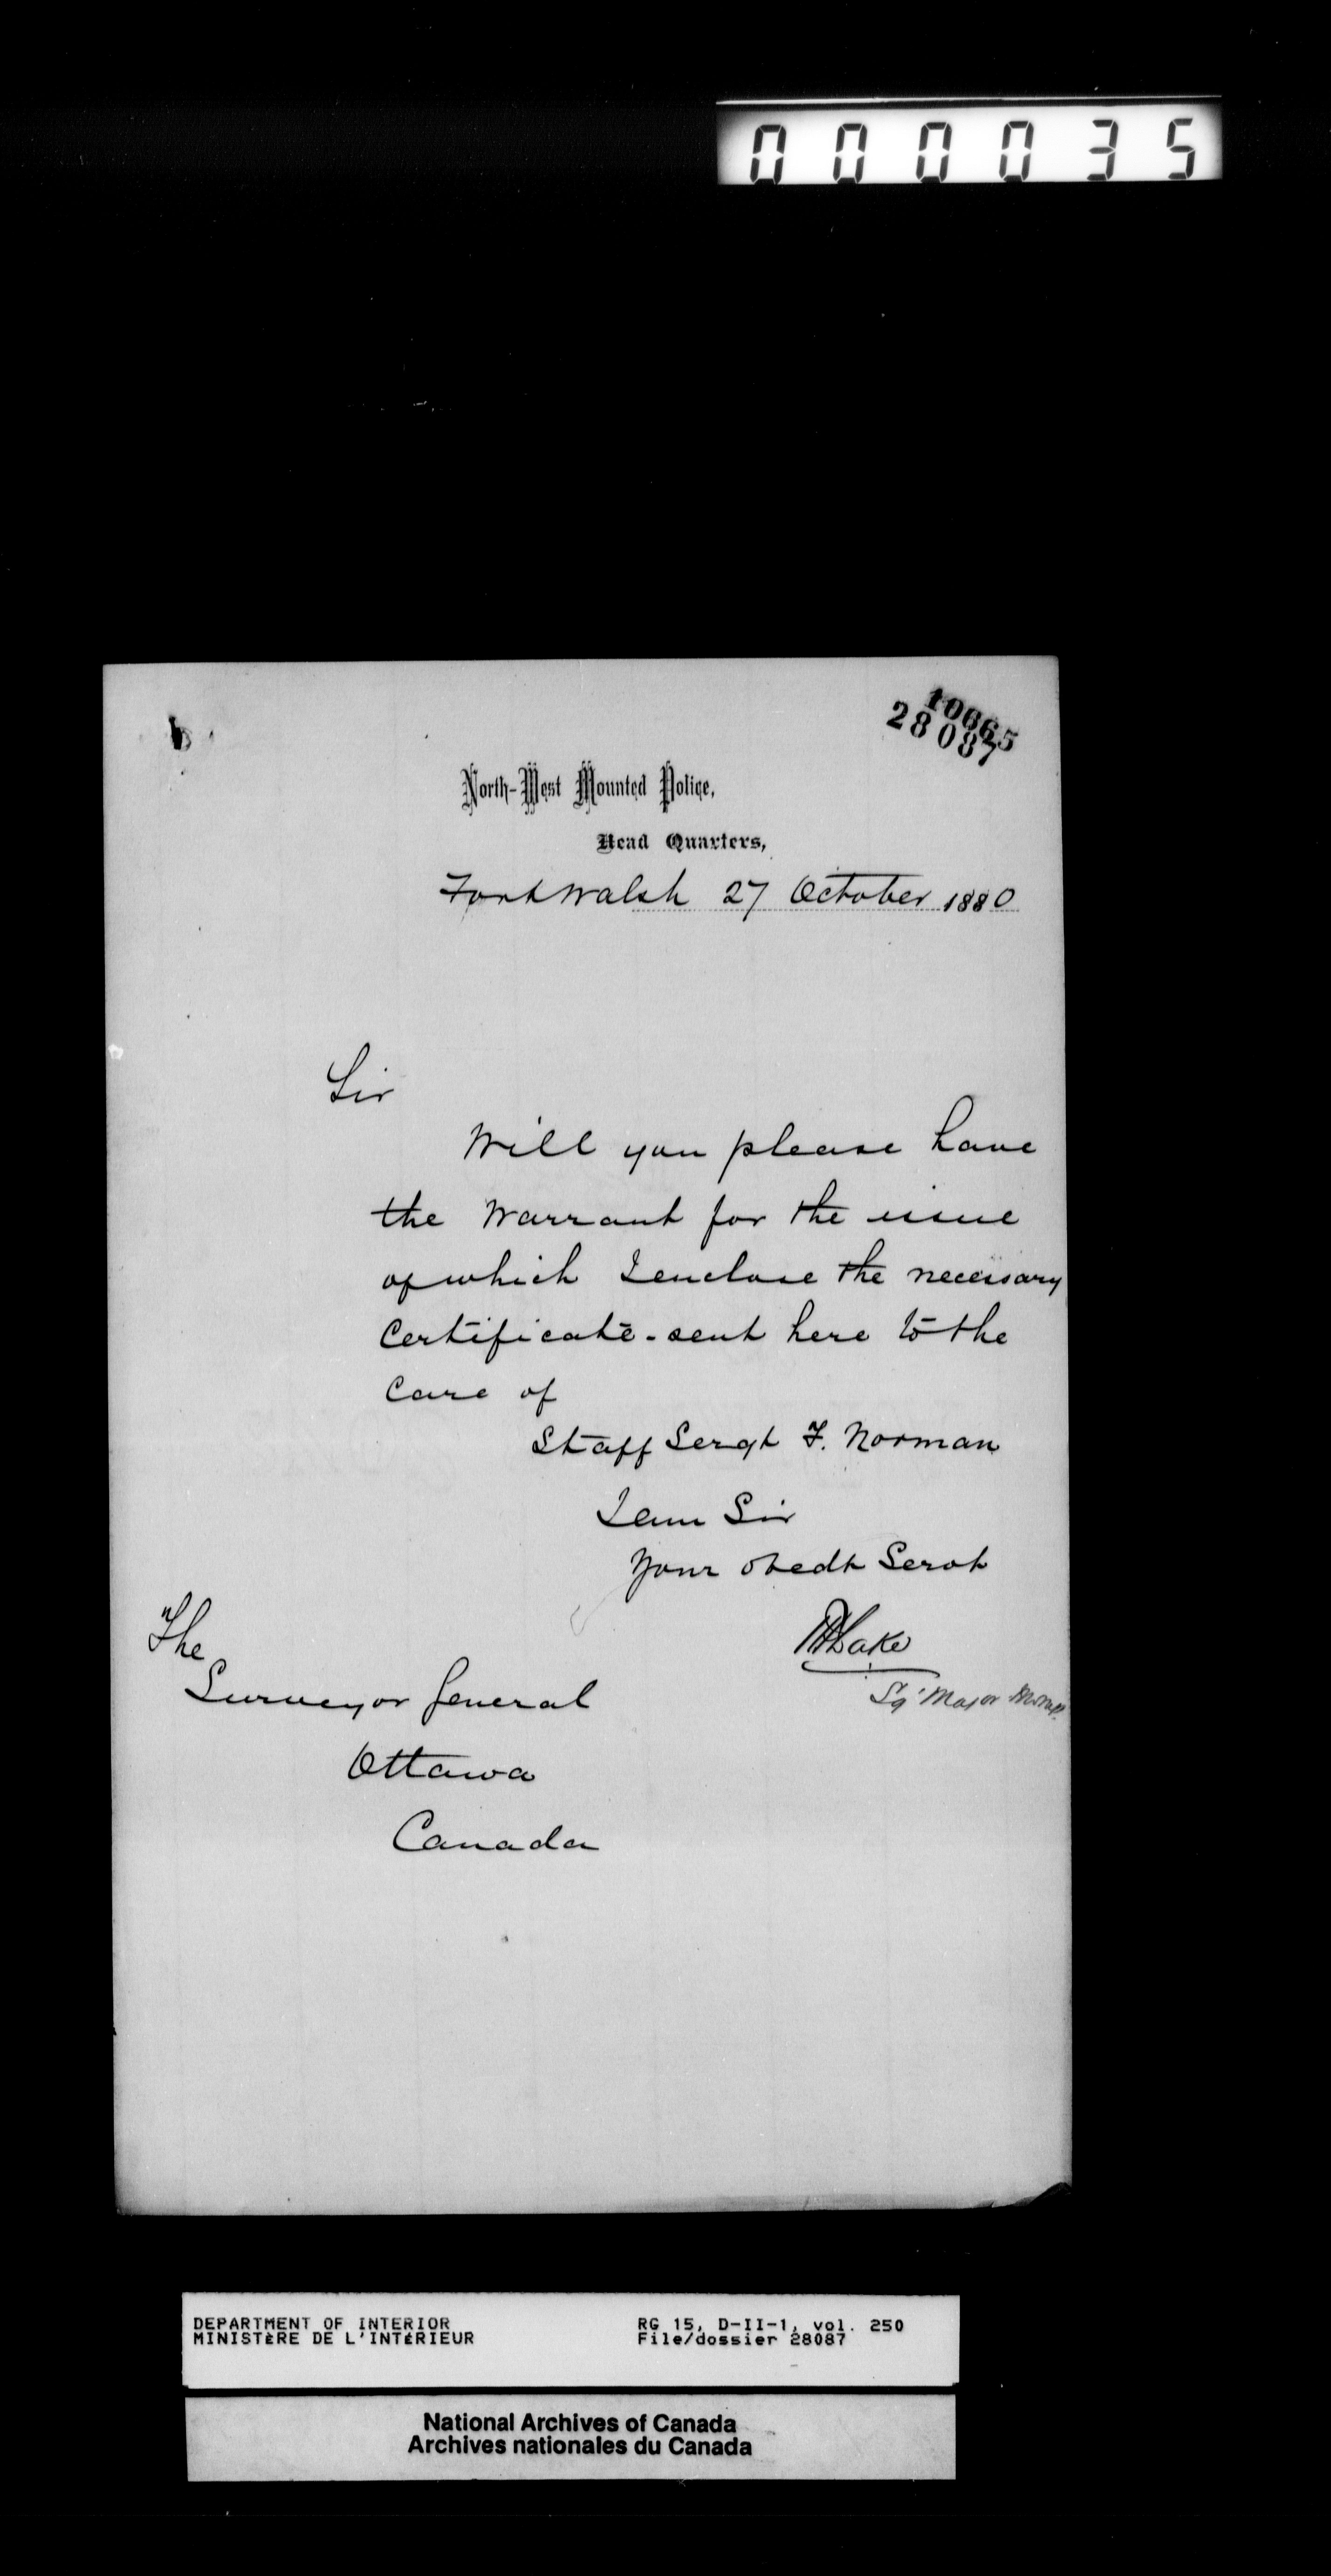 000035
10665
28087
North-West Mounted Police,
Head Quarters,
Fort Walsh 27 October 1880
Sir
Will you please have
the Warrant for the issue
of which I enclose the necessary
Certificate - sent here to the
Care of
Staff Sergt F. Norman
I am Sir
Your Obedt Servt
Lake
Sg Major NWMP
The
Surveyor General
Ottawa
Canada
DEPARTMENT OF INTERIOR RG 15, D-II-1, vol. 250
MINISTÈRE DE L'INTÉRIEUR File/dossier 28087
National Archives of Canada
Archives nationales du Canada